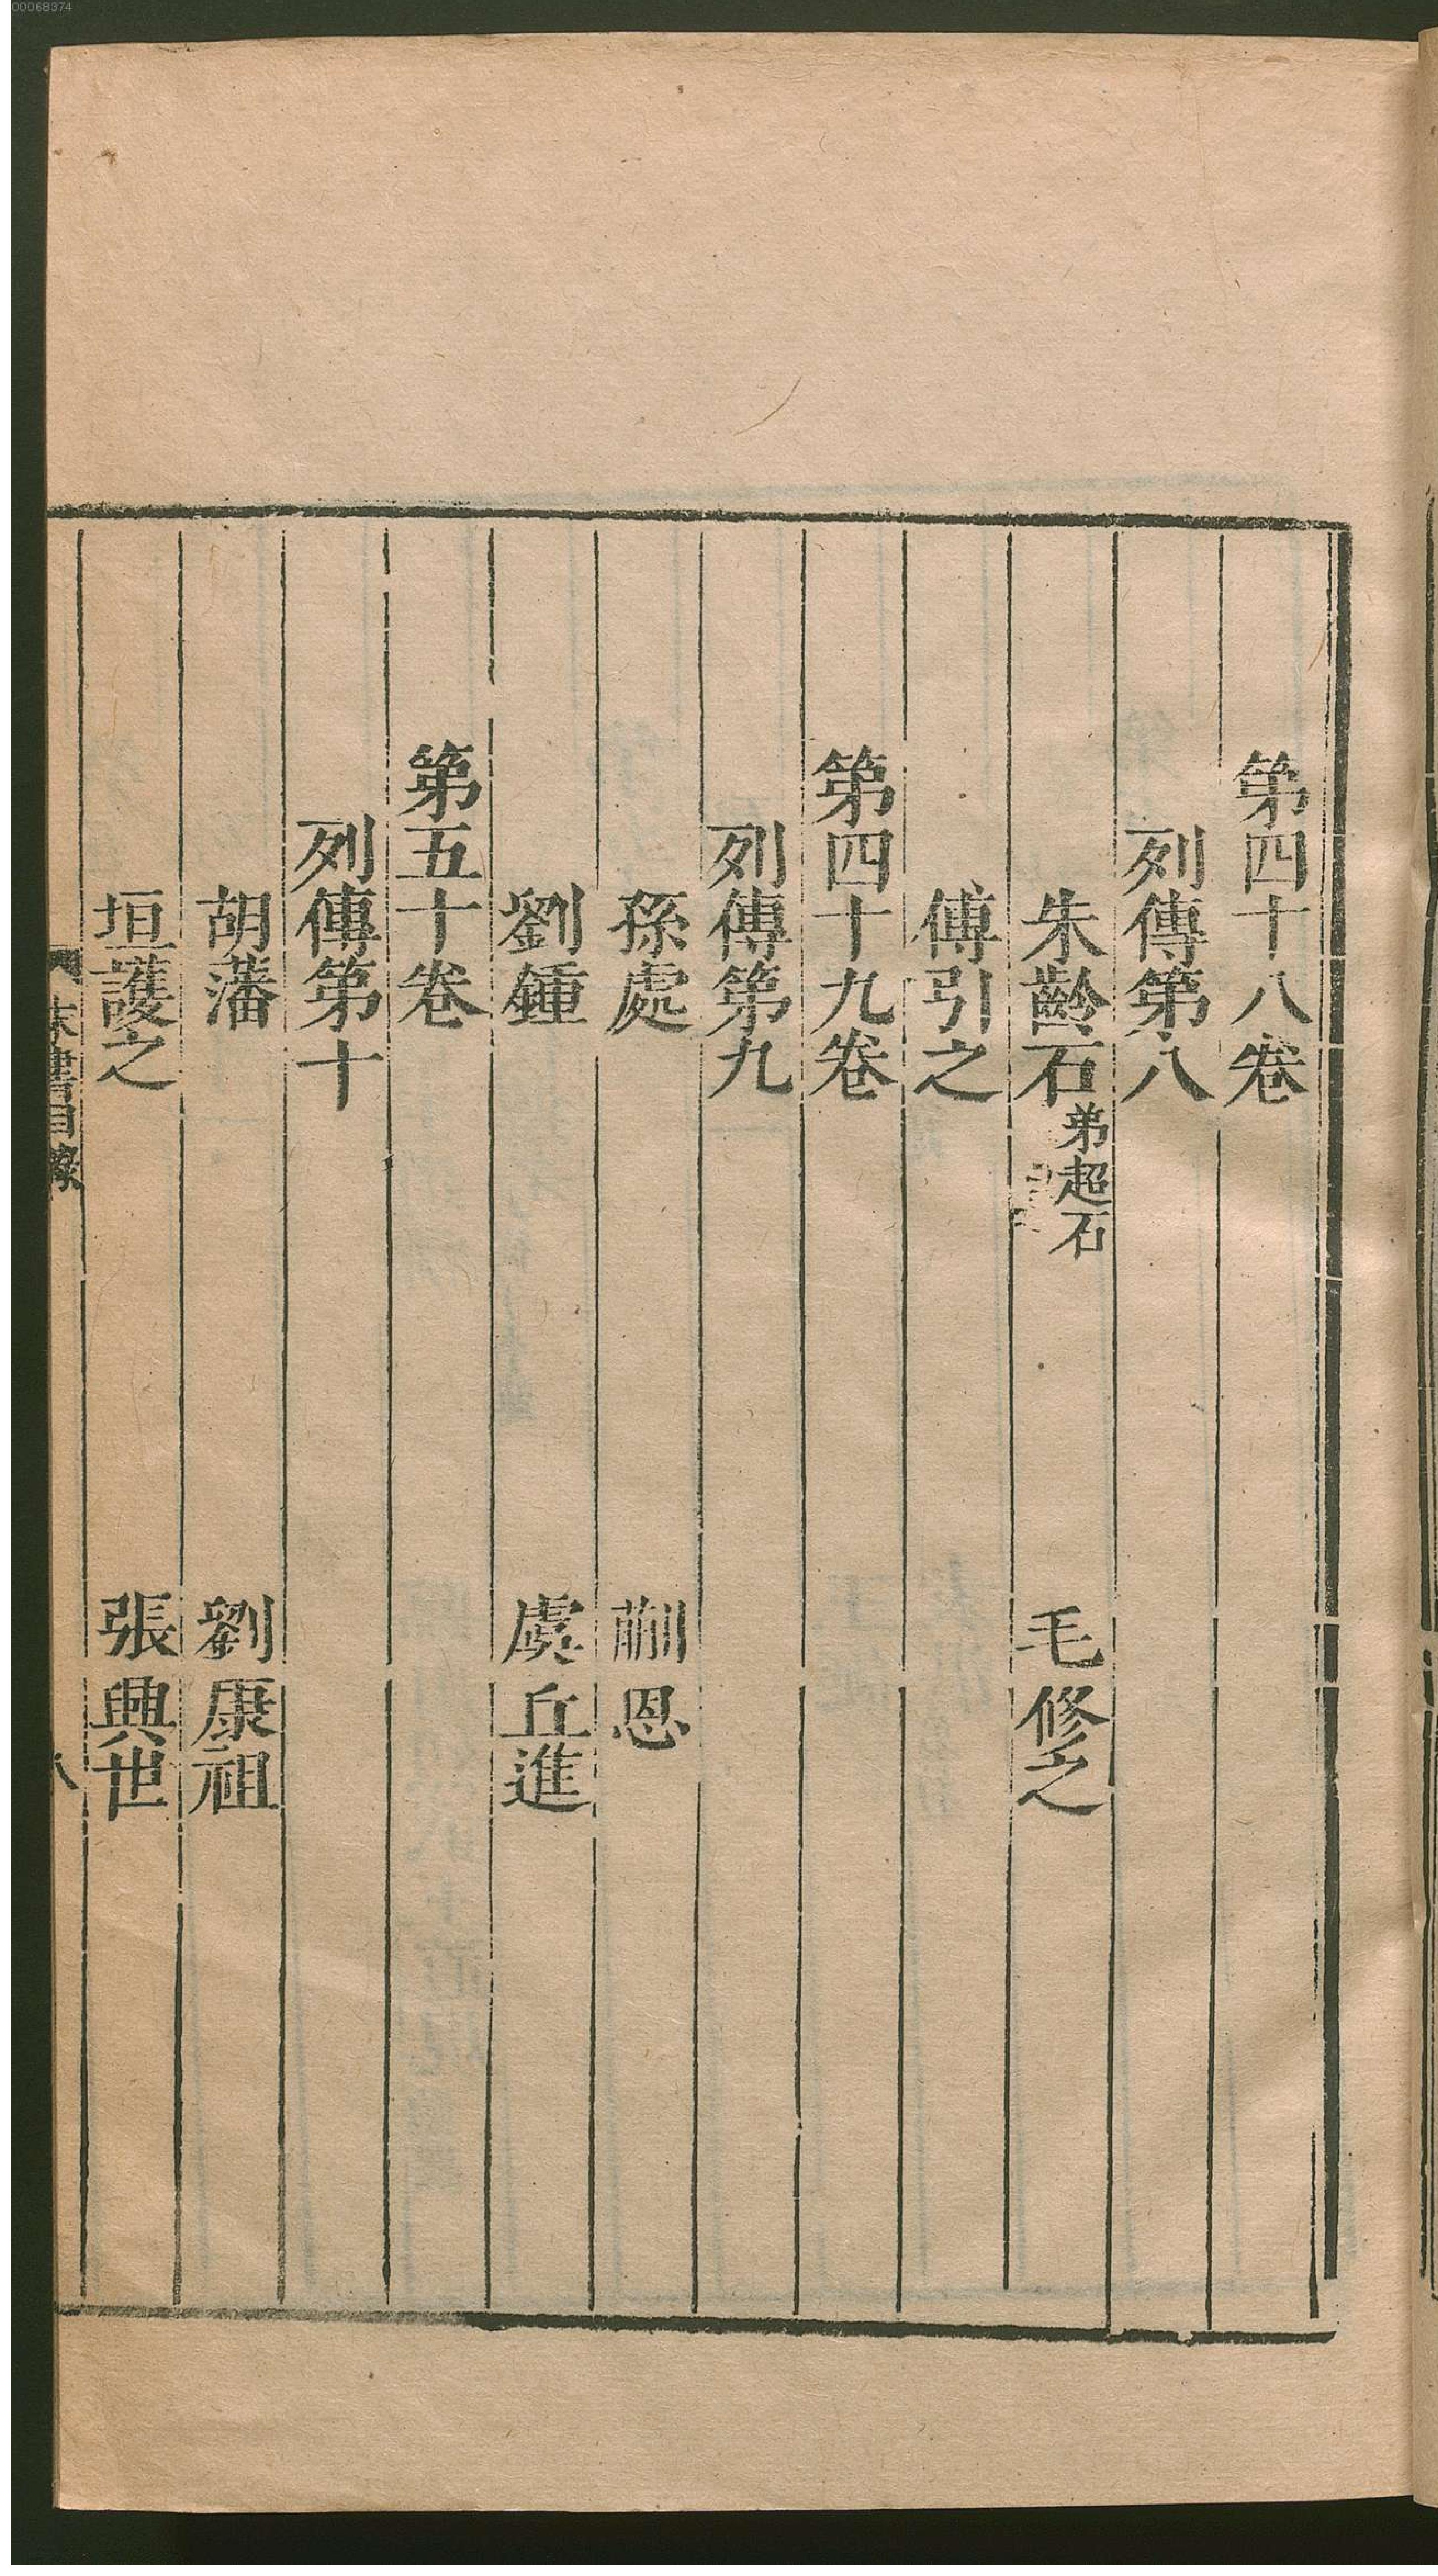 第四十八卷
列傳第八
朱齡石 弟超石 毛修之
傅引之
第四十九卷
列傳第九
孫處 蒯恩
劉鍾 虞丘進
第五十卷
列傳第十
胡藩 劉康祖
垣護之 張興世
宋書目錄 八
00068374